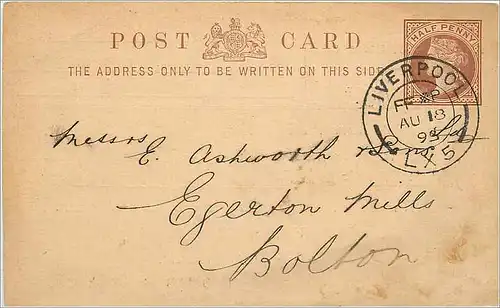 POST CARD
HALF PENNY
THE ADDRESS ONLY TO BE WRITTEN ON THIS SIDE
LIVERPOOL
AU 18
LX5
Messrs E. Ashworth & Sons
Egerton Mills
Bolton